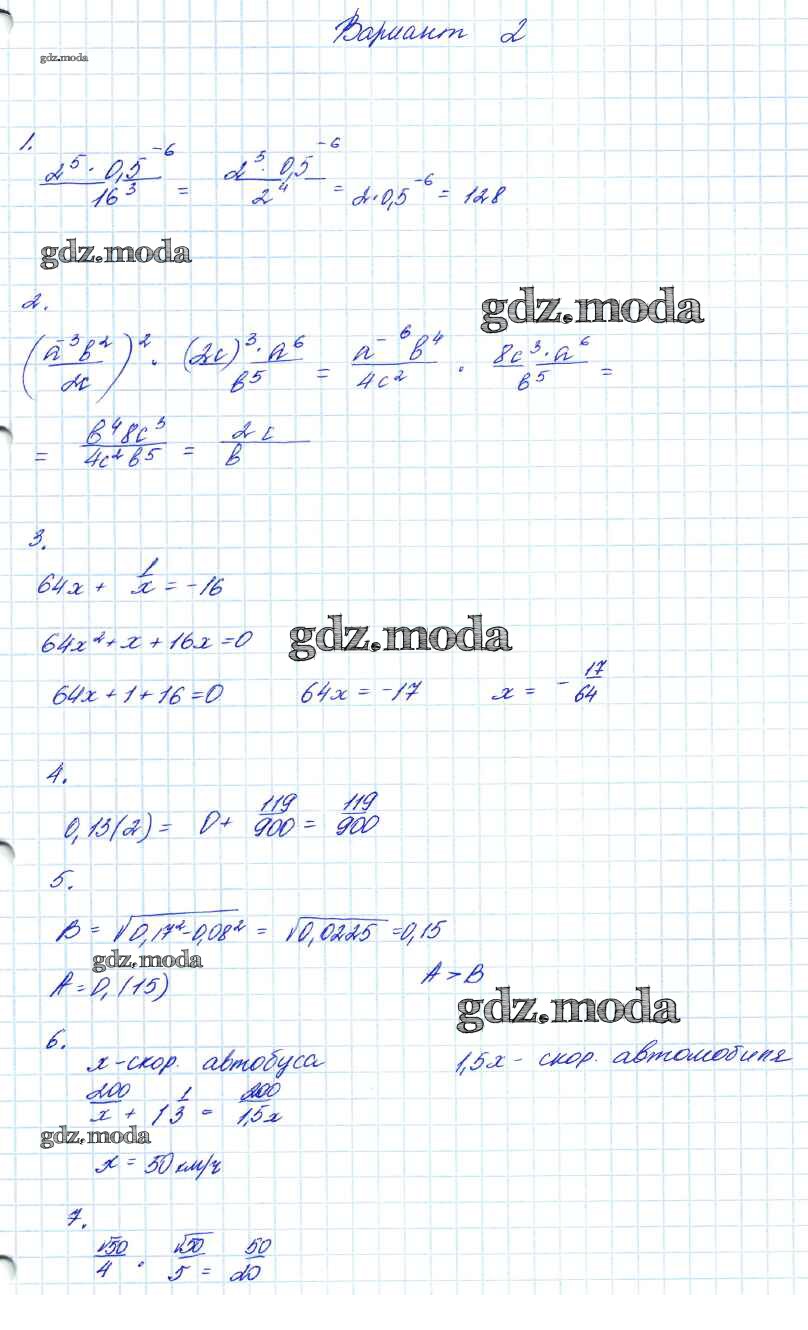 Вариант 2
gdz.moda
1.
2^5 · 0,5^-6 / 16^3 = 2^5 · 0,5^-6 / 2^4 = 2·0,5^-6 = 128
gdz.moda
gdz.moda
2.
(a^-3 b^2 / 2c)^2 · (2c)^3 · a^6 / b^5 = a^-6 b^4 / 4c^2 · 8c^3 · a^6 / b^5 =
= b^4 8c^3 / 4c^2 b^5 = 2c / b
3.
64x + 1/x = -16
64x^2 + x + 16x = 0
gdz.moda
64x + 1 + 16 = 0 64x = -17 x = - 17/64
4.
0,13(2) = 0 + 119/900 = 119/900
5.
B = √0,17^2 - 0,08^2 = √0,0225 = 0,15
gdz.moda
A = 0,(15) A > B
gdz.moda
6.
x - скор. автобуса 1,5x - скор. автомобиля
200/x + 1 1/3 = 200/1,5x
gdz.moda
x = 50 км/ч
7.
√50/4 · √50/5 = 50/20